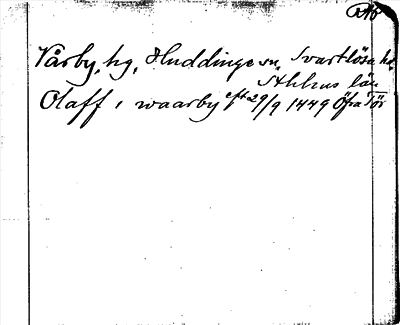 Vårby, hg, Huddinge sn, Svartlösa hd
Sthlms län
Olaff i waarby eft 29/9 1449 Öfra Tör